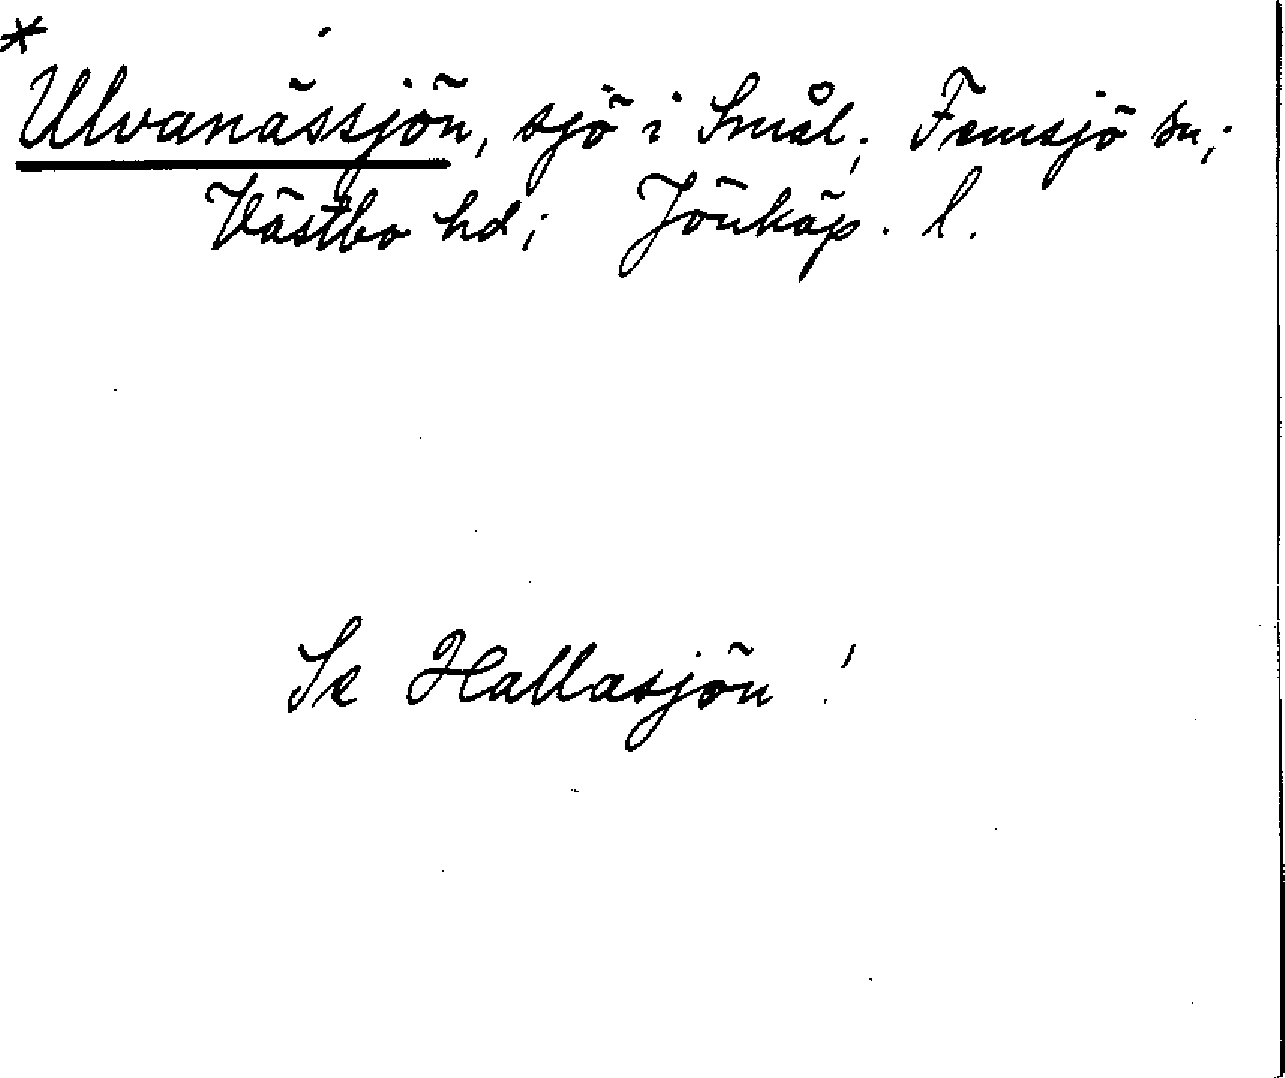 *
Ulvanässjön, sjö i Smål; Femsjö sn;
Västbo hd; Jönköp. l.
Se Hallasjön!